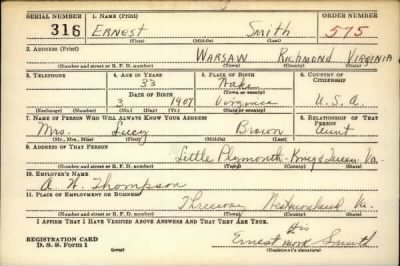 SERIAL NUMBER 1. NAME (Print) ORDER NUMBER
316 ERNEST Smith 575
(First) (Middle) (Last)
2. ADDRESS (Print)
WARSAW RICHMOND VIRGINIA
(Number and street or R. F. D. number) (Town) (County) (State)
3. TELEPHONE 4. AGE IN YEARS 5. PLACE OF BIRTH 6. COUNTRY OF CITIZENSHIP
33
(Town or county)
DATE OF BIRTH
3 1907 Virginia U.S.A.
(Exchange) (Number) (Mo.) (Day) (Yr.) (State or country)
7. NAME OF PERSON WHO WILL ALWAYS KNOW YOUR ADDRESS 8. RELATIONSHIP OF THAT PERSON
Mrs. Lucy Brown Aunt
(Mr., Mrs., Miss) (First) (Middle) (Last)
9. ADDRESS OF THAT PERSON
Little Plymouth King & Queen Va.
(Number and street or R. F. D. number) (Town) (County) (State)
10. EMPLOYER'S NAME
A. W. Thompson
11. PLACE OF EMPLOYMENT OR BUSINESS
Threeway Westmoreland Va.
(Number and street or R. F. D. number) (Town) (County) (State)
I AFFIRM THAT I HAVE VERIFIED ABOVE ANSWERS AND THAT THEY ARE TRUE.
His
REGISTRATION CARD
D. S. S. Form 1
Ernest mark Smith
(Registrant's signature)